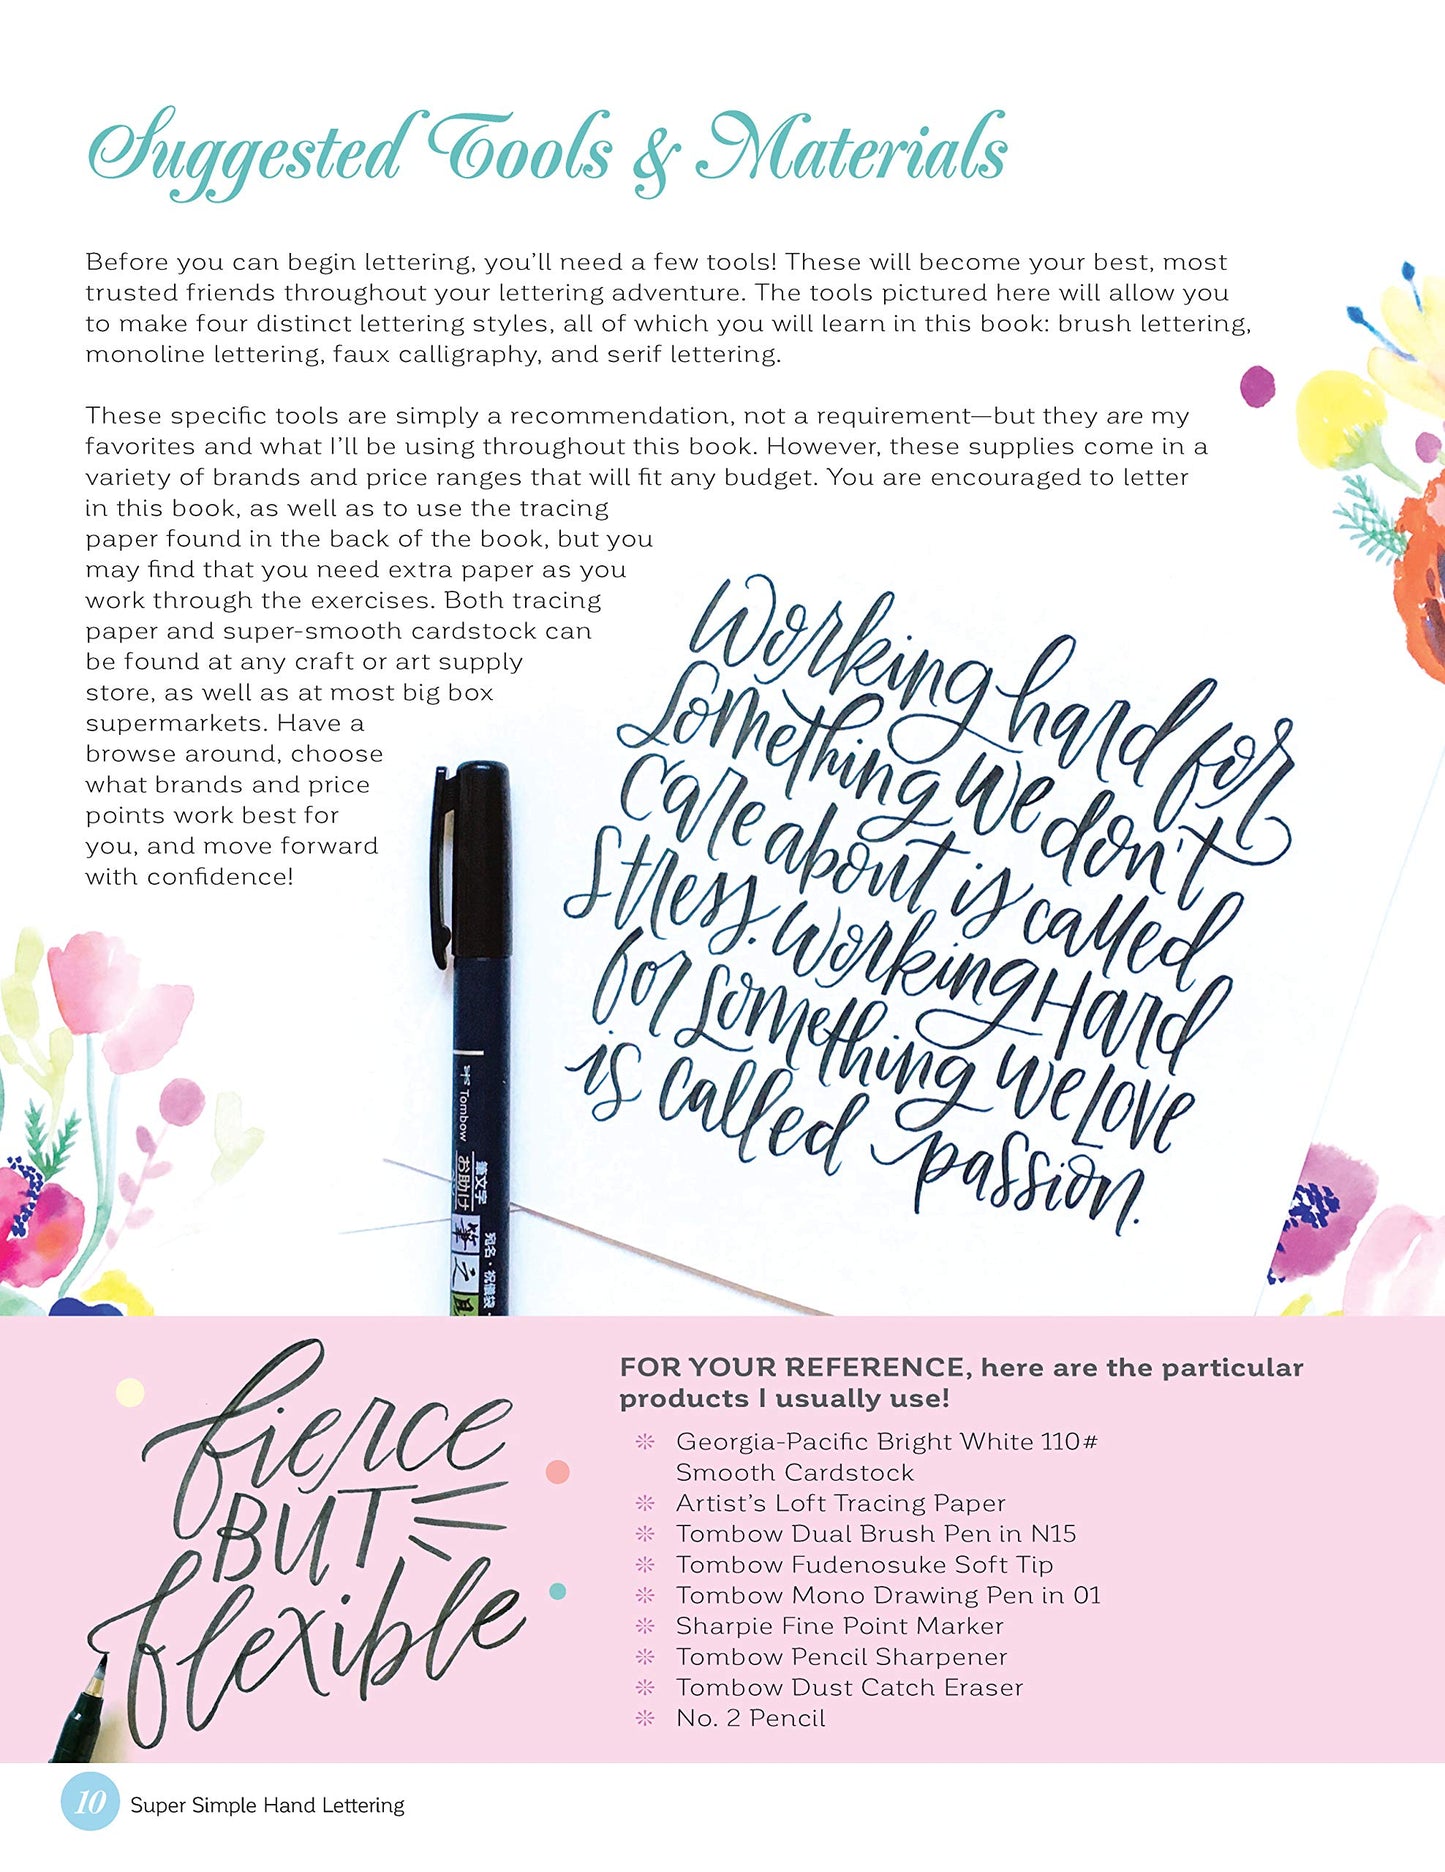 Suggested Tools & Materials
Before you can begin lettering, you’ll need a few tools! These will become your best, most
trusted friends throughout your lettering adventure. The tools pictured here will allow you
to make four distinct lettering styles, all of which you will learn in this book: brush lettering,
monoline lettering, faux calligraphy, and serif lettering.
These specific tools are simply a recommendation, not a requirement—but they are my
favorites and what I’ll be using throughout this book. However, these supplies come in a
variety of brands and price ranges that will fit any budget. You are encouraged to letter
in this book, as well as to use the tracing
paper found in the back of the book, but you
may find that you need extra paper as you
work through the exercises. Both tracing
paper and super-smooth cardstock can
be found at any craft or art supply
store, as well as at most big box
supermarkets. Have a
browse around, choose
what brands and price
points work best for
you, and move forward
with confidence!
Working hard for
Something we don't
Care about is called
Stress. Working Hard
for Something We Love
is Called passion.
Tombow
筆文字
お助け
筆之
宛名・祝儀袋・
fierce
BUT
flexible
FOR YOUR REFERENCE, here are the particular
products I usually use!
Georgia-Pacific Bright White 110#
Smooth Cardstock
Artist’s Loft Tracing Paper
Tombow Dual Brush Pen in N15
Tombow Fudenosuke Soft Tip
Tombow Mono Drawing Pen in 01
Sharpie Fine Point Marker
Tombow Pencil Sharpener
Tombow Dust Catch Eraser
No. 2 Pencil
10 Super Simple Hand Lettering